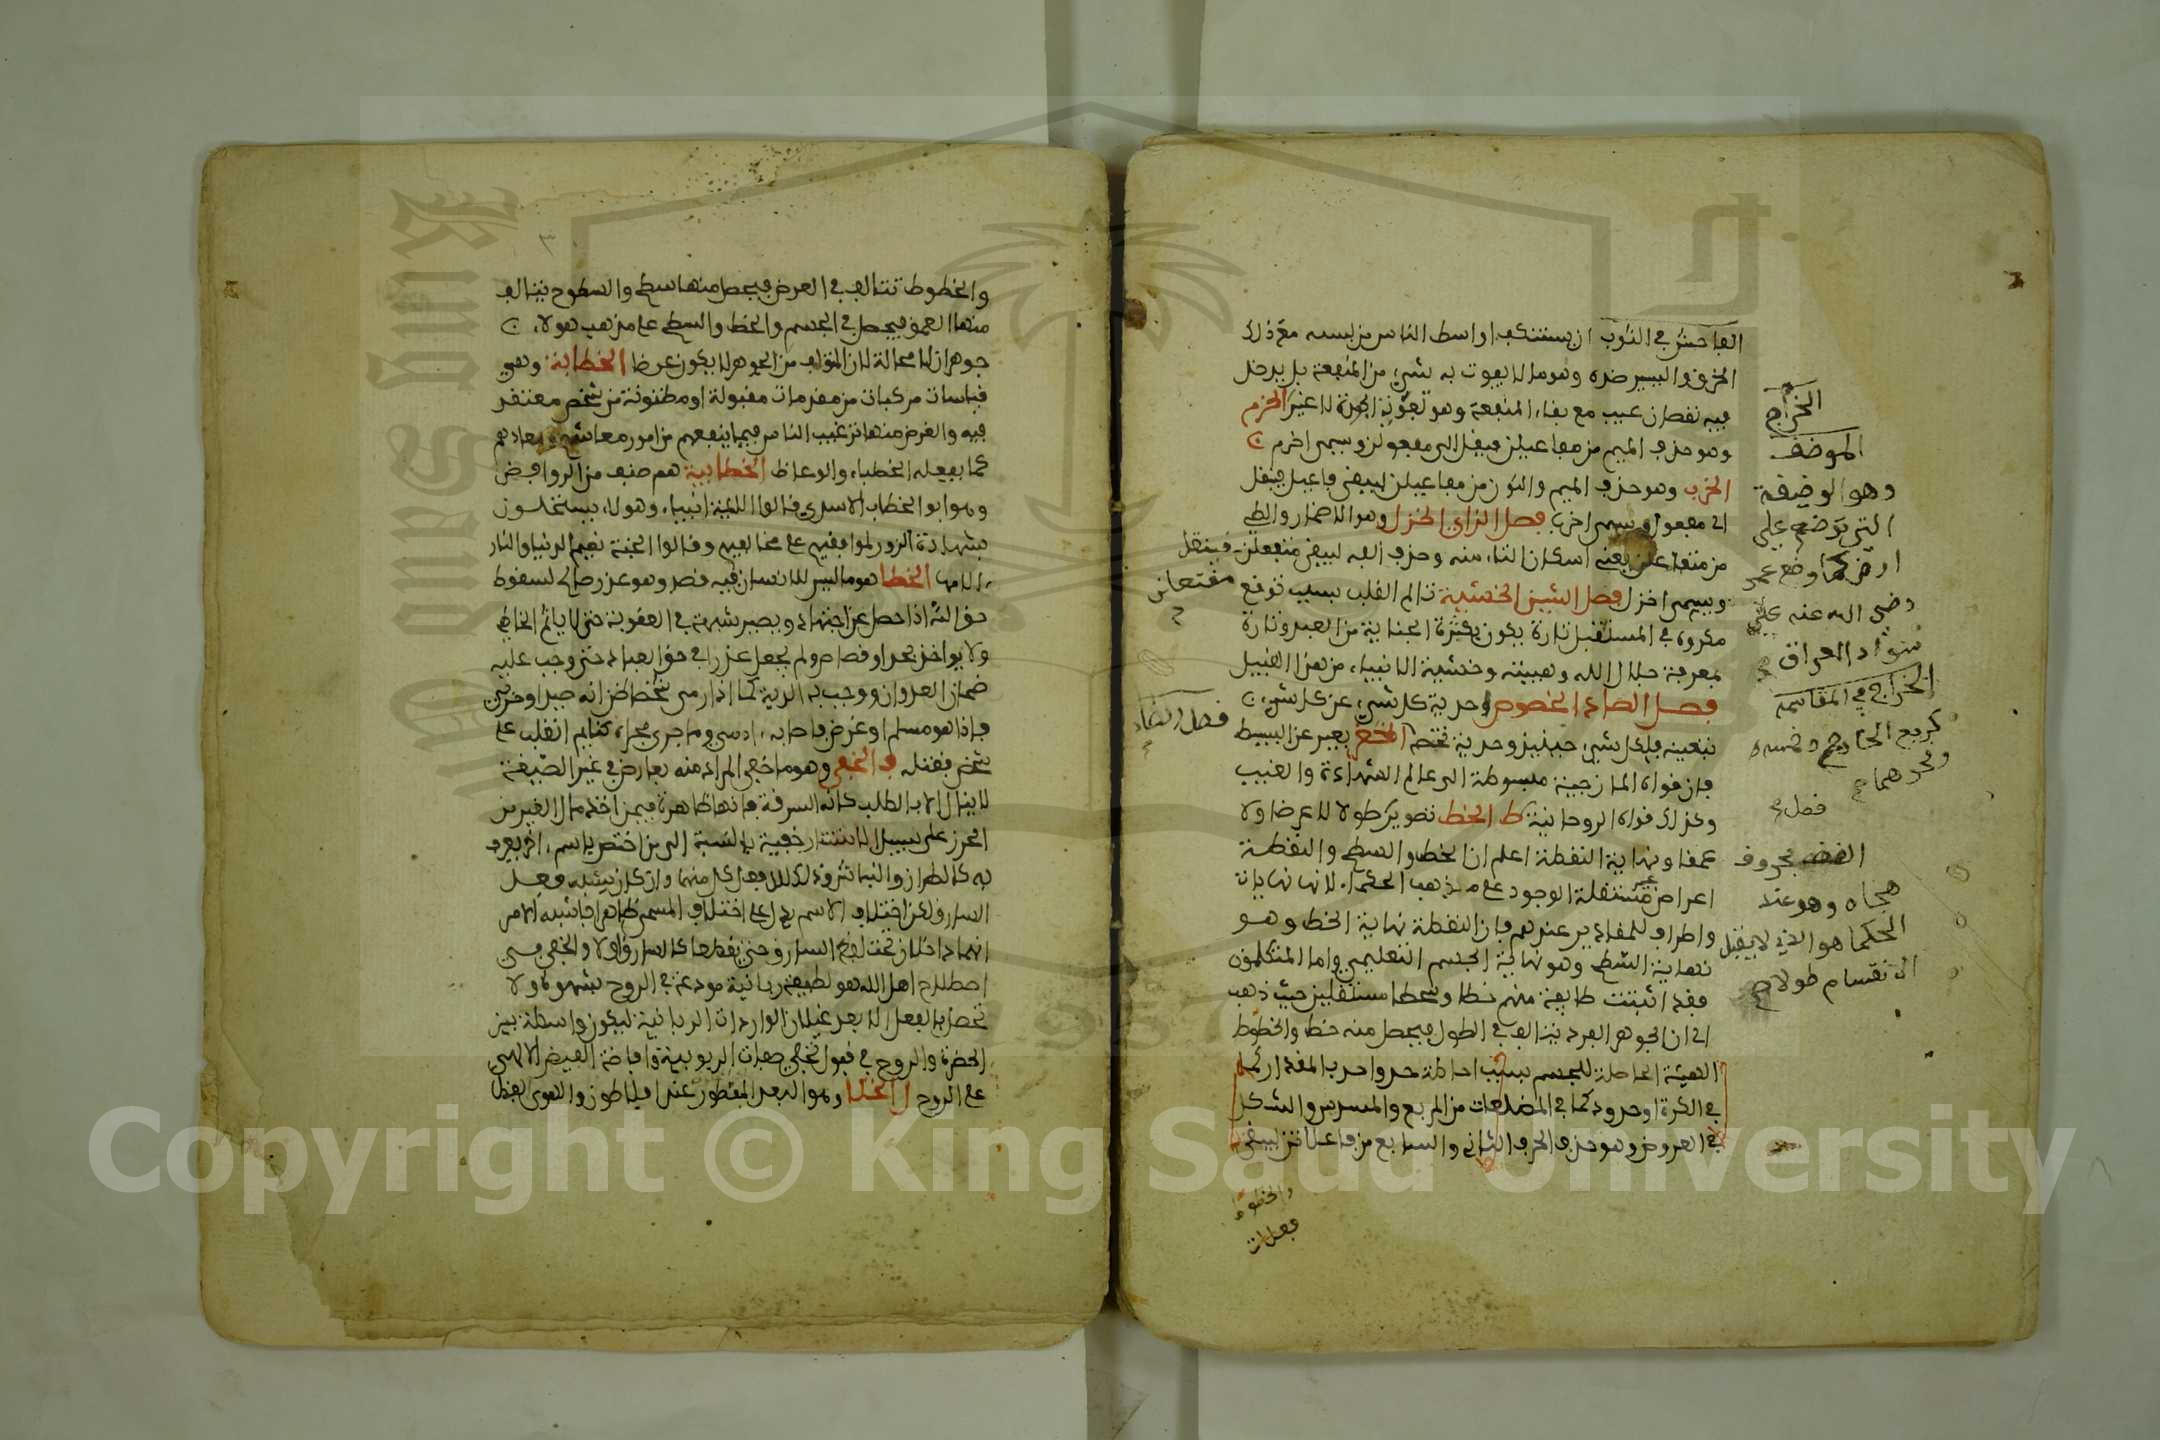 الفاحش في الثوب ان يستنكف اواسط الناس من لبسه مع ذلك
الخرق واليسير ضده وهو ما لا يفوت به شيء من المنفعة بل يدخل
فيه نقصان عيب مع بقاء المنفعة وهو تفويت الجودة لا غير الخرم
وهو حذف الميم من مفاعيلن فينقل الى مفعولن ويسمى اخرم
الخرب وهو حذف الميم والنون من مفاعيلن ليبقى فاعيل فينقل
الى مفعول ويسمى اخرب فصل الزاي الخزل وهو الاضمار والطي
من متفاعلن يعني اسكان التاء منه وحذف الفه ليبقى متفعلن فينقل
مفتعلن
ويسمى اخزل فصل الشين الخشية تالم القلب بسبب توقع
مكروه في المستقبل تارة يكون بكثرة الجناية من العبد وتارة
بمعرفة جلال الله وهيبته وخشية الانبياء من هذا القبيل
فصل الصاد الخصوص احدية كل شيء عن كل شيء
بتعينه فلكل شيء حينئذ وحدية تخصه الخضر يعبر عن البسيط
فان قواه المزاجية مبسوطة الى عالم الشهادة والغيب
وكذلك قواه الروحانية ط الخط تصوير طولا لا عرضا ولا
عمقا ونهاية النقطة اعلم ان الخط والسطح والنقطة
اعراض غير مستقلة الوجود على مذهب الحكماء لانها نهايات
واطراف للمقادير عندهم فان النقطة نهاية الخط وهو
نهاية السطح وهو نهاية الجسم التعليمي واما المتكلمون
فقد اثبتت طايفة منهم خطا وسطحا مستقلين حيث ذهب
الى ان الجوهر الفرد يتالف في الطول فيحصل منه خط والخطوط
الهيئة الحاصلة للجسم بسبب احاطة حد واحد بالمقدار كما
في الكرة او حدود كما في المضلعات من المربع والمسدس والشكل
في العروض وهو حذف الحرف الثاني والسابع من فاعلاتن ليبقى
والخطوط
فعلات
الخراج
الموضف
وهو الوضيفة
التي توضع على
ارض كما وضع عمر
رضى الله عنه على
سواد العراق
الخراج في المقاسمة
كربع الخارج وخمسه
ونحوهما
فصل
بحروف
هجاه وهو عند
الحكما هو الذي لا يقبل
الانقسام طولا
فصل الضاد
والخطوط تتالف في العرض فيحصل منها سطح والسطوح يتالف
منها العمق فيحصل في الجسم والخط والسطح على مذهب هولاء
جوهران لا محالة لان المتولف من الجوهر لا يكون عرضا الخطابة وهي
قياسات مركبات من مقدمات مقبولة او مظنونة من شخص معتقد
فيه والغرض منها ترغيب الناس فيما ينفعهم من امور معاشهم ومعادهم
كما يفعله الخطباء والوعاظ الخطابية هم صنف من الروافض
وهو ابو الخطاب الاسدي قالوا الايمة انبياء وهولاء يستحلون
بشهادة الزور لموافقيهم على مخالفيهم وقالوا الجنة نعيم الدنيا والنار
الامها الخطا هو ما ليس للانسان فيه قصد وهو عذر صالح لسقوط
حق الله اذا حصل عن اجتهاد ويصير شبهة في العقوبة حتى لا يأثم الخاطي
ولا يواخذ بحد او قصاص ولم يجعل عذرا في حق العباد حتى وجب عليه
ضمان العدوان ووجب به الدية كما اذا رمى شخصا ظن انه صيد او حربي
فاذا هو مسلم او غرض فاصابه ادمي وما جرى مجراه كنايم انقلب على
شخص فقتله ف الخفي وهو ما خفي المراد منه بعارض في غير الصيغة
لا ينال الا بالطلب كاية السرقة فانها ظاهرة فيمن اخذ مال الغير من
الحرز على سبيل الاستتار خفية بالنسبة الى من اختص باسم اخر يعرف
به كالطرار والنباش وذلك لان فعل كل منهما وان كان يشبه فعل
السارق ولكن اختلاف الاسم يدل على اختلاف المسمى ظاهرا فاشتبه الامر
انهما داخلان تحت لفظ السارق حتى يقطعا كالسارق اولا والخفي في
اصطلاح اهل الله هو لطيفة ربانية مودعة في الروح بالقوة ولا
تحصل بالفعل الا بعد غلبات الواردات الربانية ليكون واسطة بين
الحضرة والروح في قبول تجلي صفات الربوبية وافاضة الفيض الالهي
على الروح ل الخلا وهو البعد المفطور عند افلاطون والفضا